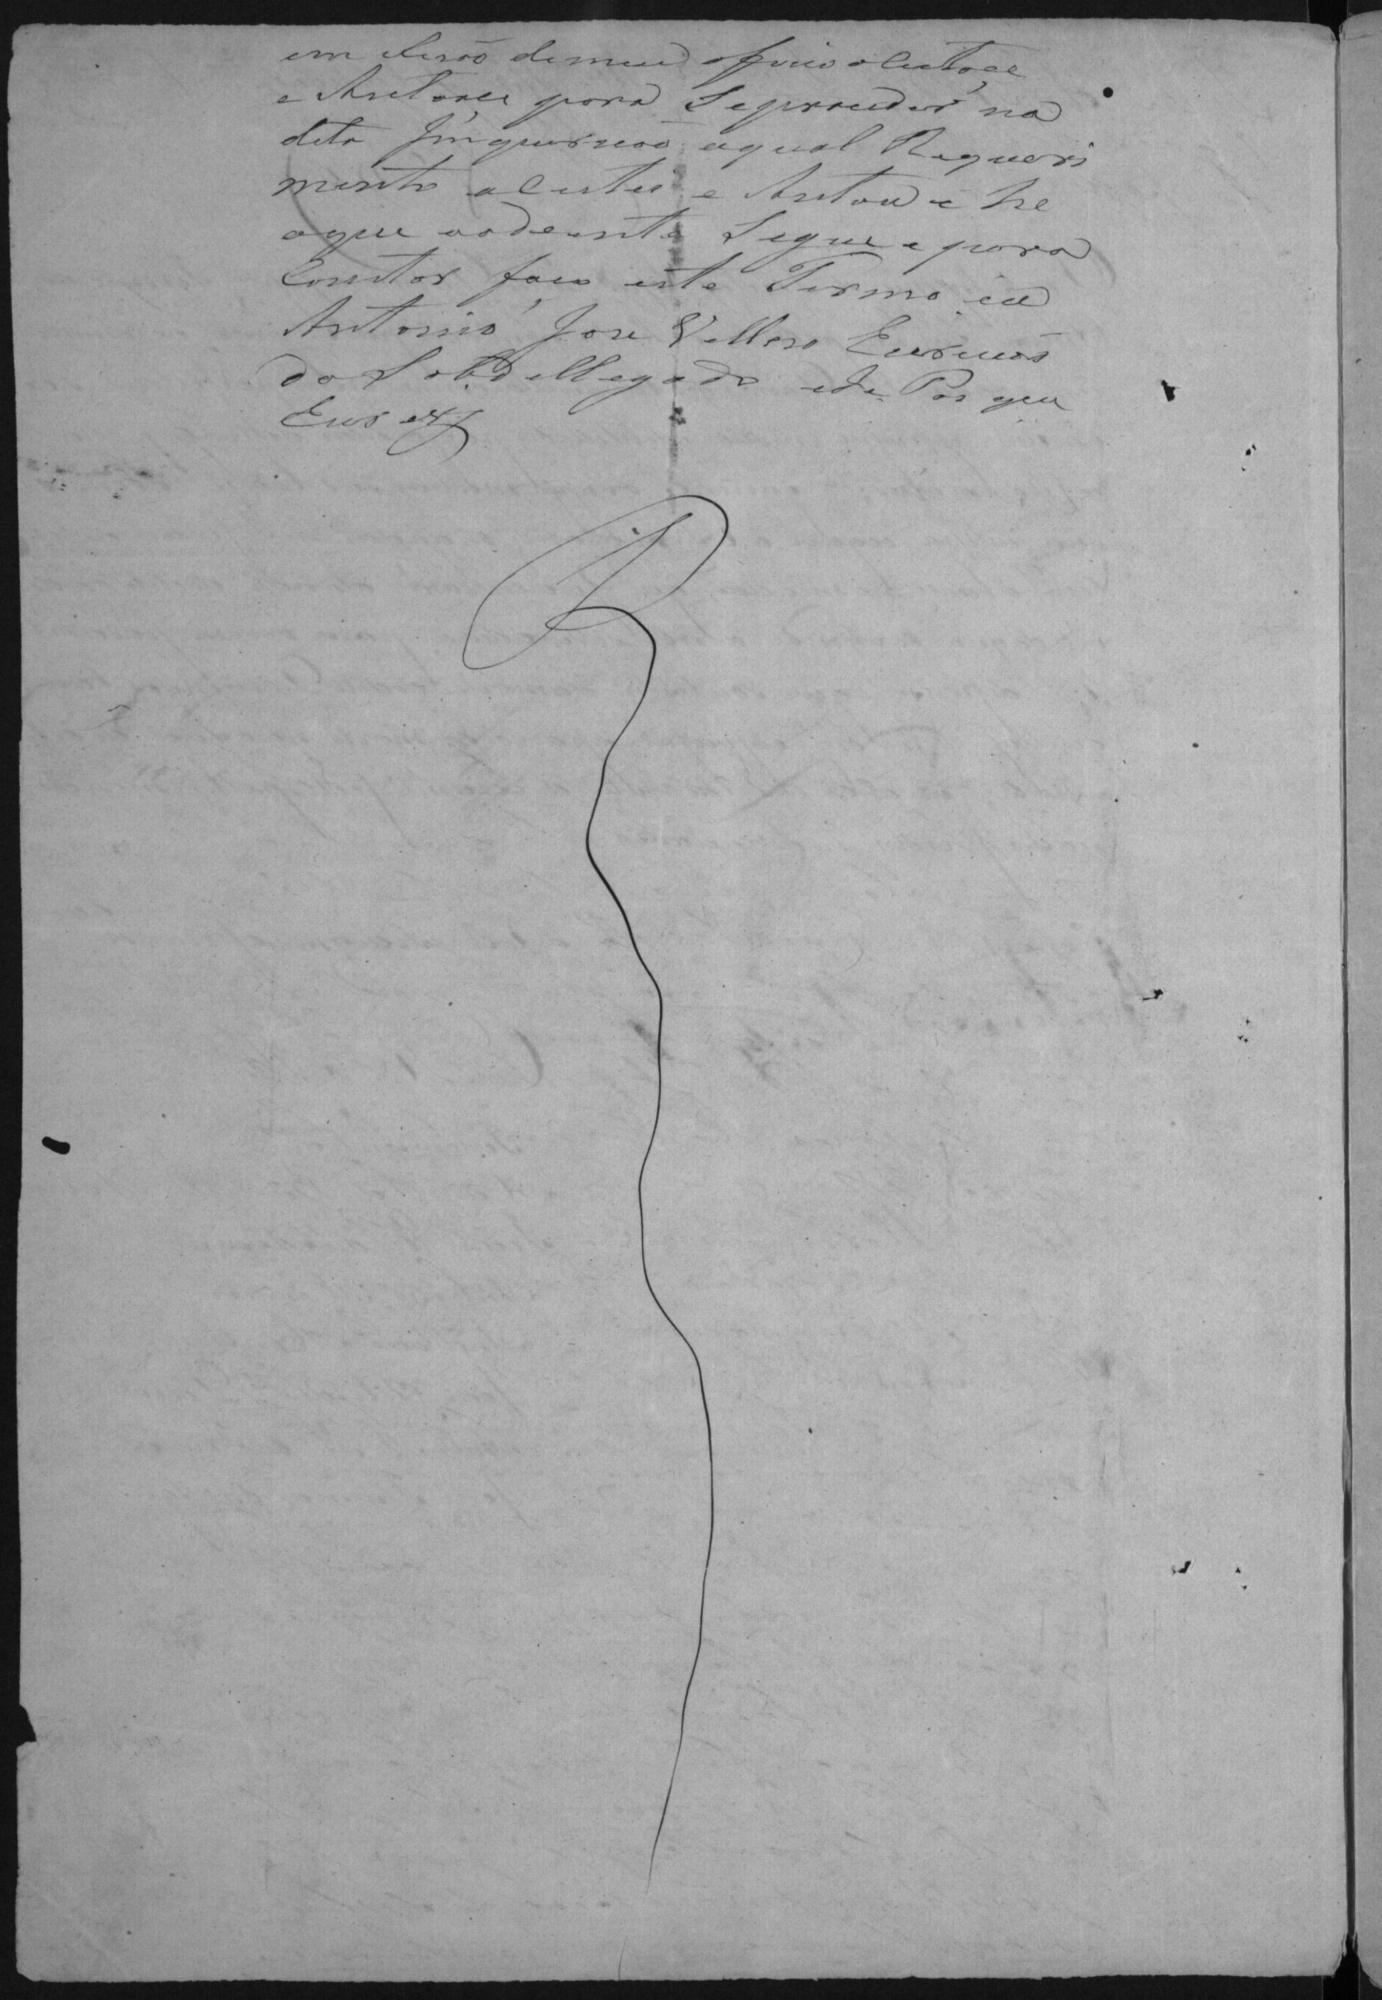 em rasão de meu officio aceitace
e Autoace para Seproceder na
dita Jnquerícaõ aqual Requeri
mento aceitei e Autoei e he
oque aodeante Segue e para
Constar faco este Termo eu
Antonio Jose Velloso Escrivaõ
do Sobdellegado ede Paz que
Escrevy